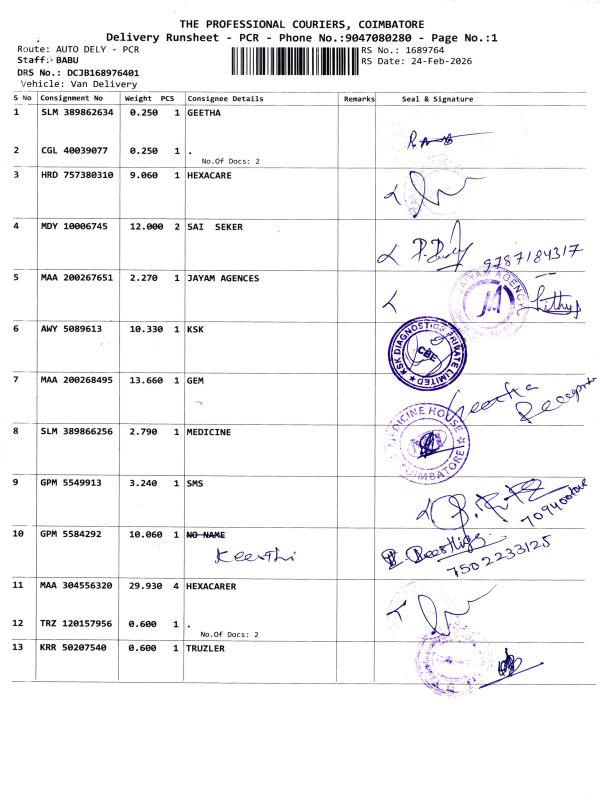 THE PROFESSIONAL COURIERS, COIMBATORE
Delivery Runsheet - PCR - Phone No.:9047080280 - Page No.:1
Route: AUTO DELY - PCR
RS No.: 1689764
Staff: BABU
RS Date: 24-Feb-2026
DRS No.: DCJB168976401
Vehicle: Van Delivery
S No Consignment No Weight PCS Consignee Details Remarks Seal & Signature
1 SLM 389862634 0.250 1 GEETHA
2 CGL 40039077 0.250 1 .
No.Of Docs: 2
3 HRD 757380310 9.060 1 HEXACARE
4 MDY 10006745 12.000 2 SAI SEKER
9787184317
5 MAA 200267651 2.270 1 JAYAM AGENCES
JAYAM AGENC
JA
6 AWY 5089613 10.330 1 KSK
KSK DIAGNOSTICS PRIVATE LIMITED
CBE
7 MAA 200268495 13.660 1 GEM
Keertha
8 SLM 389866256 2.790 1 MEDICINE
MEDICINE HOUSE
COIMBATORE
9 GPM 5549913 3.240 1 SMS
10 GPM 5584292 10.060 1 NO NAME
Keerthi
7502233125
11 MAA 304556320 29.930 4 HEXACARER
12 TRZ 120157956 0.600 1 .
No.Of Docs: 2
13 KRR 50207540 0.600 1 TRUZLER